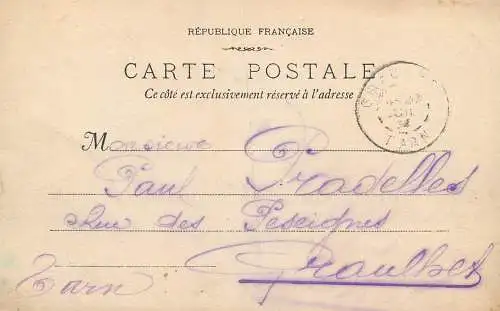 RÉPUBLIQUE FRANÇAISE
CARTE POSTALE
Ce côté est exclusivement réservé à l'adresse
TARN
Monsieur
Paul Pradelles
Rue des Peseignes
Graulhet
Tarn